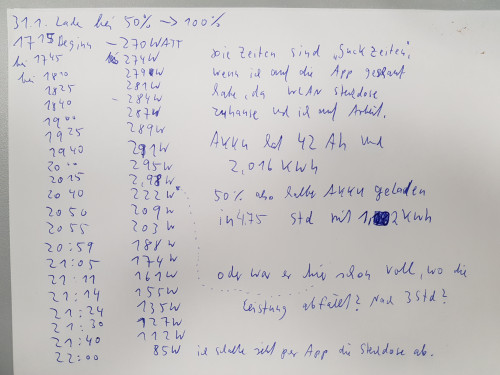 31.1. Lade bei 50% → 100%
17 15 Beginn – 270 WATT
bei 17 45 274W
bei 18 00 279W
18 25 281W
18 40 – 284W
19 00 287W
19 25 289W
19 40 291W
20 00 295W
20 25 2,98W
20 40 222W
20 50 209W
20 55 203W
20:59 188W
21:05 174W
21:11 161W
21:14 155W
21:24 135W
21:30 127W
21:40 112W
22:00 85W ich schalte jetzt per App die Steckdose ab.
die Zeiten sind „Guck Zeiten",
wenn ich auf die App geschaut
habe, da WLAN Steckdose
zuhause und ich auf Arbeit.
AKKU hat 42 Ah und
2,016 KWh
50% also halbe AKKU geladen
in 4.75 Std mit 1, 2 KWh
oder war er hier schon voll, wo die
Leistung abfällt? Nach 3 Std?